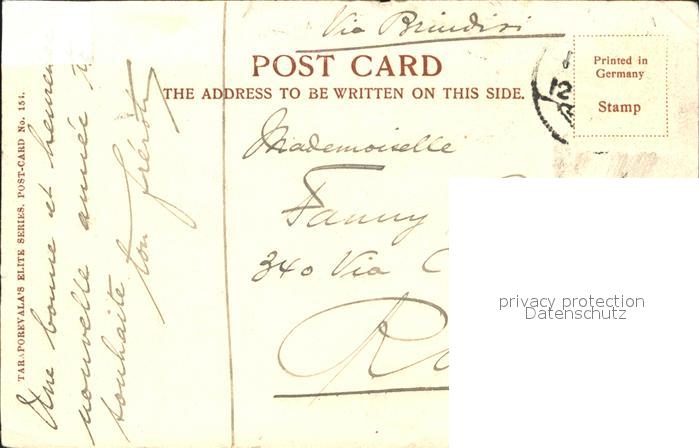 Via Brindisi
POST CARD
THE ADDRESS TO BE WRITTEN ON THIS SIDE.
Printed in
Germany
Stamp
12
Mademoiselle
Fanny
340 Via C
Ro
TARAPOREVALA'S ELITE SERIES. POST-CARD No. 154.
Une bonne et heureu
nouvelle année te
souhaite
ton frérot
privacy protection
Datenschutz